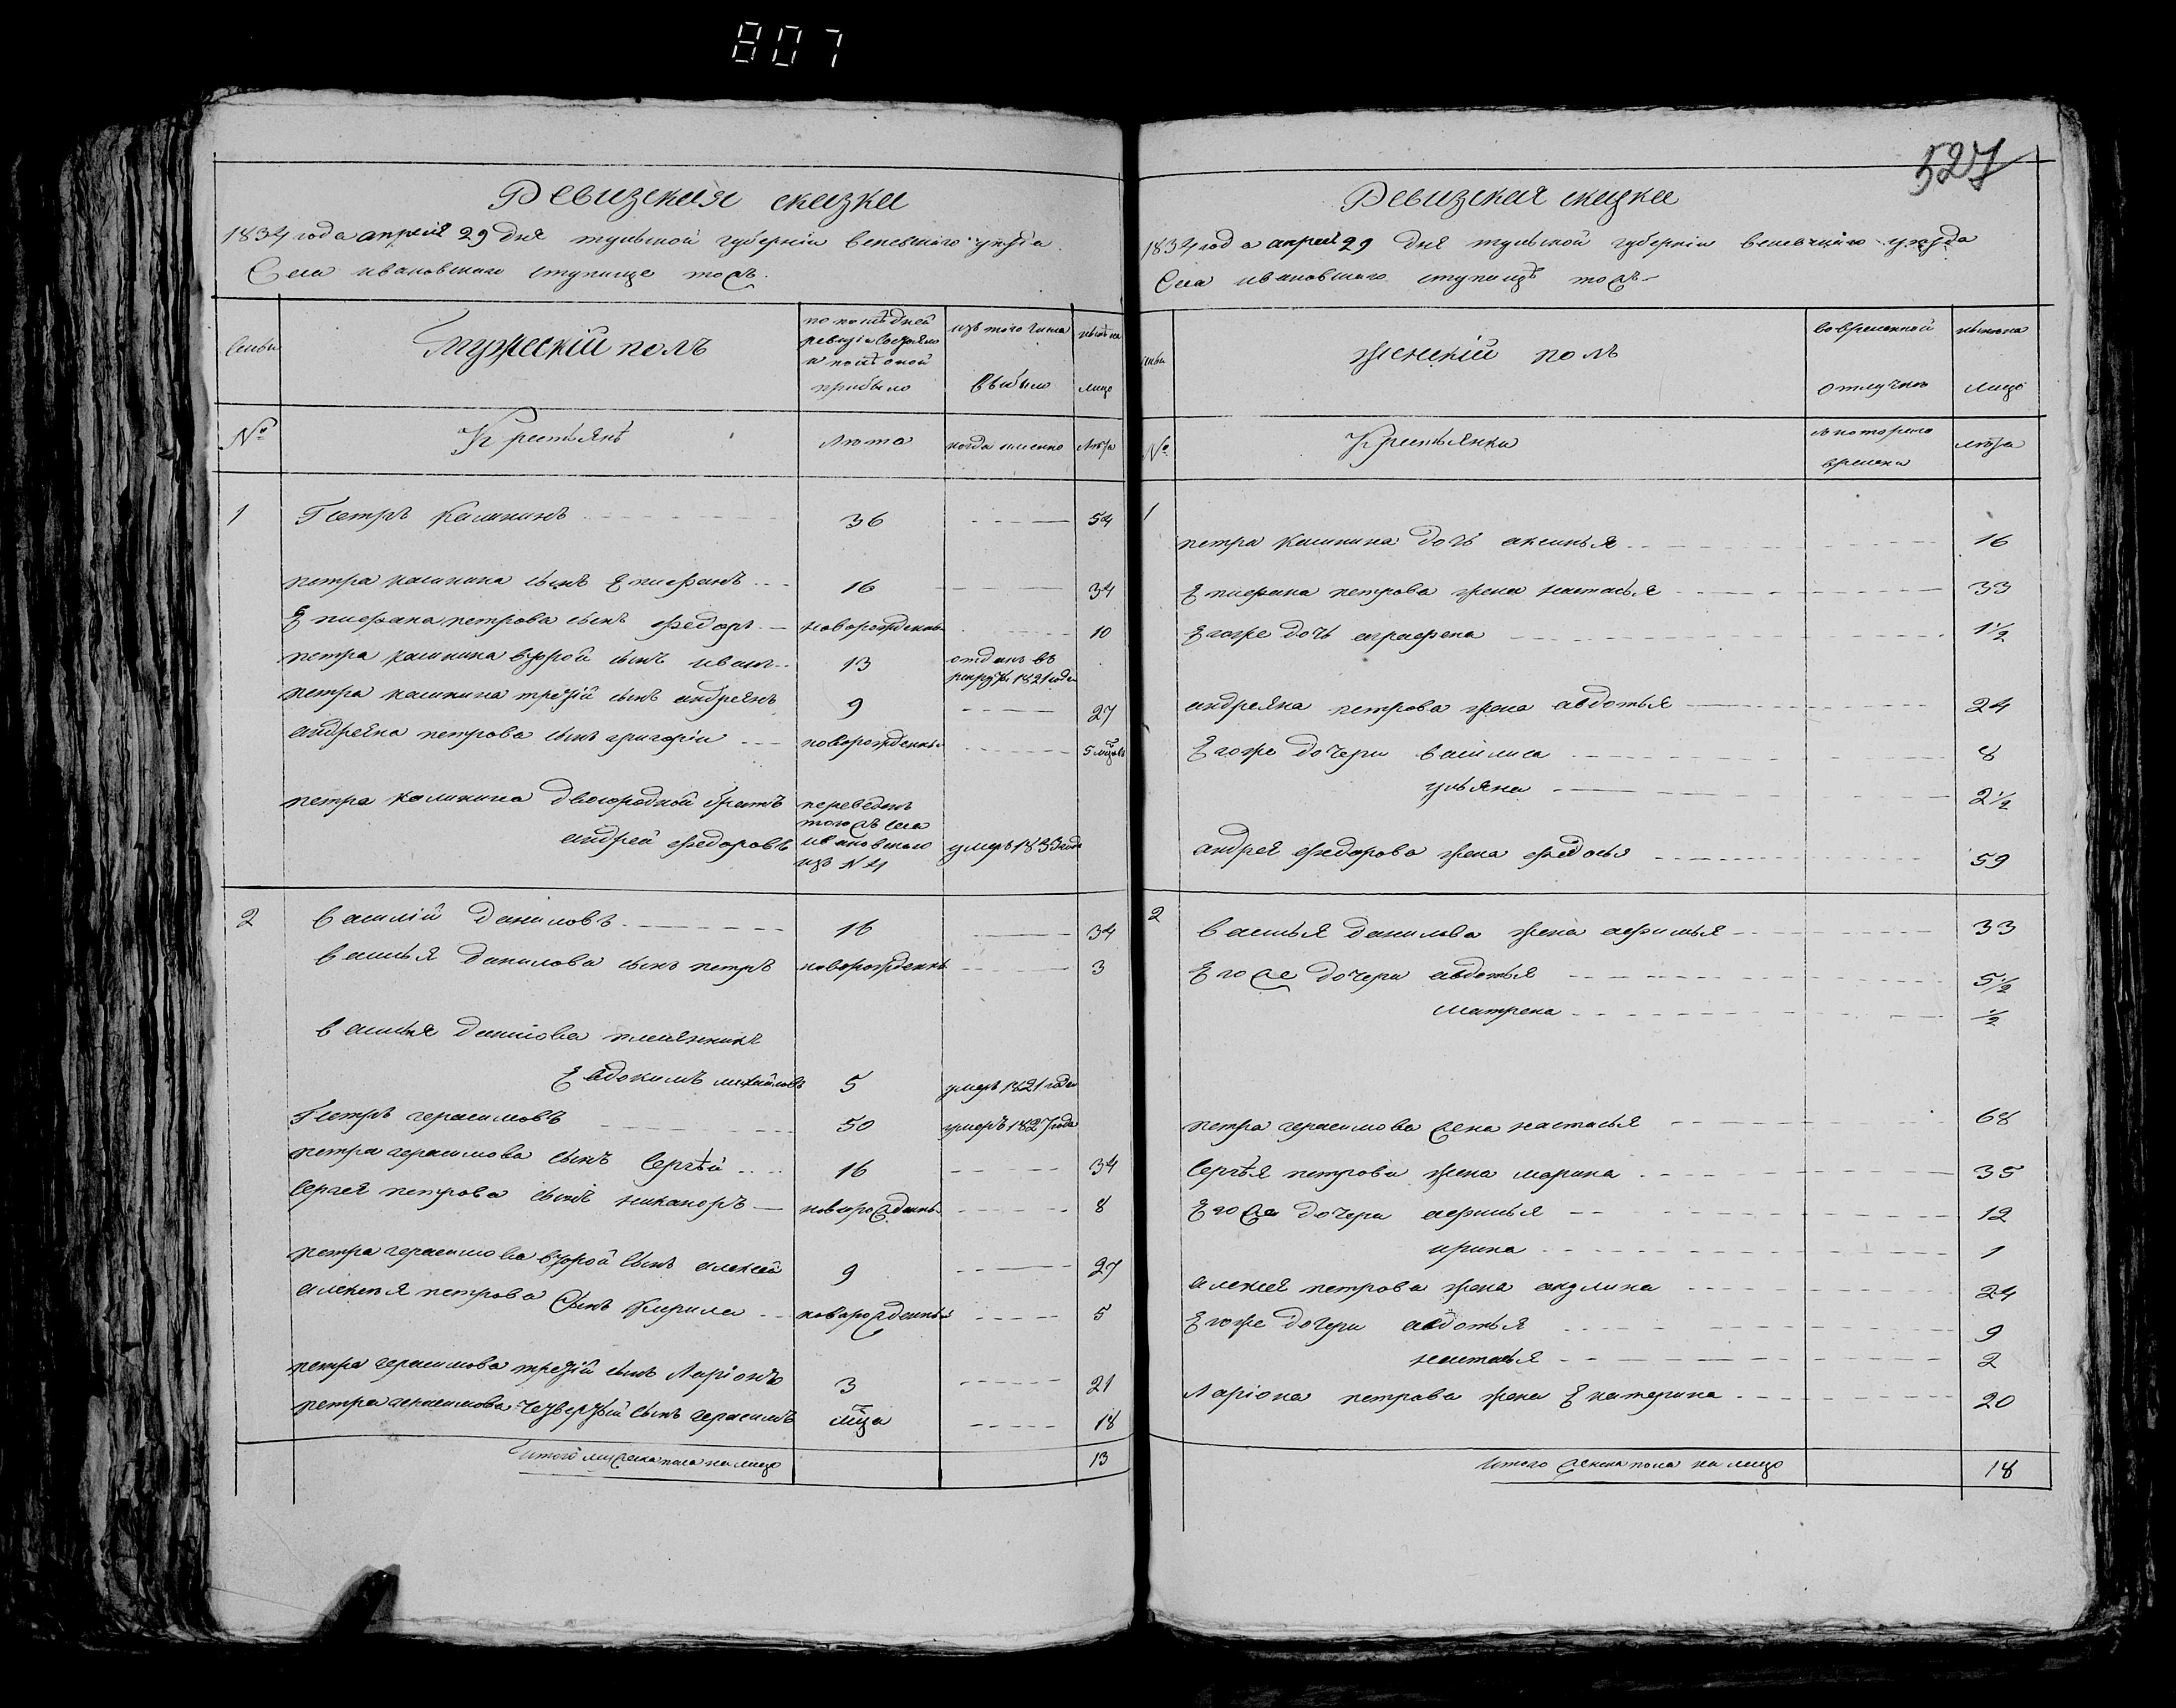 807
527
Ревизская сказка
1834 года апреля 29 дня тульской губернiи веневского уезда
Села ивановского ступище тож
Семьи
Мужеский полъ
по последней
ревизiи состояло
и после оной
прибыло
изъ того числа
выбыло
ныне на
лицо
№
Крестьяне
лета
когда именно
лета
1 Петръ Калининъ 36 54
петра калинина сынъ Епифанъ 16 34
Епифана петрова сынъ федоръ новорожденны 10
петра калинина второй сынъ иванъ 13 отданъ въ
рекруты 1821 года
петра калинина третiй сынъ андреянъ 9 27
андреяна петрова сынъ григорiй новорожденны 5 мцовъ
петра калинина двоюродной братъ
андрей федоровъ
переведенъ
тогожъ села
ивановского
изъ № 4
умеръ 1833 года
2 василiй даниловъ 16 34
василья данилова сынъ петръ новорожденны 3
василья данилова племянникъ
Евдокимъ михайловъ 5 умеръ 1821 года
Петръ герасимовъ 50 умеръ 1827 года
петра герасимова сынъ сергѣй 16 34
сергея петрова сынъ никаноръ новорожденны 8
петра герасимова второй сынъ алексей 9 27
алексея петрова сынъ кирила новорожденны 5
петра герасимова третiй сынъ Ларiонъ 3 21
петра герасимова четвертый сынъ герасимъ мца 18
Итого мужеска пола на лицо 13
Ревизская сказка
1834 года апреля 29 дня тульской губернiи веневского уезда
Села ивановского ступищѣ тожъ
семьи
женскiй полъ
во временной
отлучке
ныне на
лицо
№
Крестьянки
съ которого
времени
лета
1
петра калинина дочь аксинья 16
Епифана петрова жена настасья 33
Егоже дочь аграфена 1 1/2
андреяна петрова жена авдотья 24
Егоже дочери василиса 8
ульяна 2 1/2
андрея федорова жена федосья 59
2 василья данилова жена афимья 33
Егоже дочери авдотья 5 1/2
матрена 1/2
петра герасимова жена настасья 68
сергѣя петрова жена марина 35
Егоже дочери афимья 12
ирина 1
алексея петрова жена акулина 24
Егоже дочери авдотья 9
настасья 2
Ларiона петрова жена Екатерина 20
Итого женска пола на лицо 18